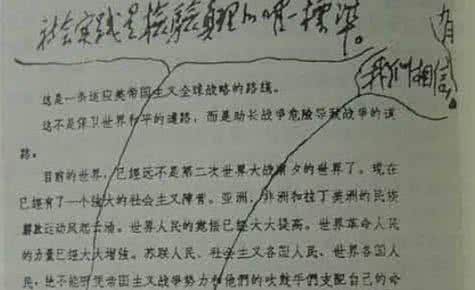 社会实践是检驗真理的唯一標準。
内有
我们相信。
这是一条适应美帝国主义全球战略的路线。
这不是保卫世界和平的道路，而是助长战争危险导致战争的道
路。
目前的世界，已经远不是第二次世界大战前夕的世界了。现在
已经有了一个强大的社会主义阵营。亚洲、非洲和拉丁美洲的民族
解放运动风起云涌。世界人民的觉悟已经大大提高。世界革命人民
的力量已经大大增强。苏联人民、社会主义各国人民、世界各国人
民，绝不能听凭帝国主义战争势力和他們的吹鼓手們支配自己的命